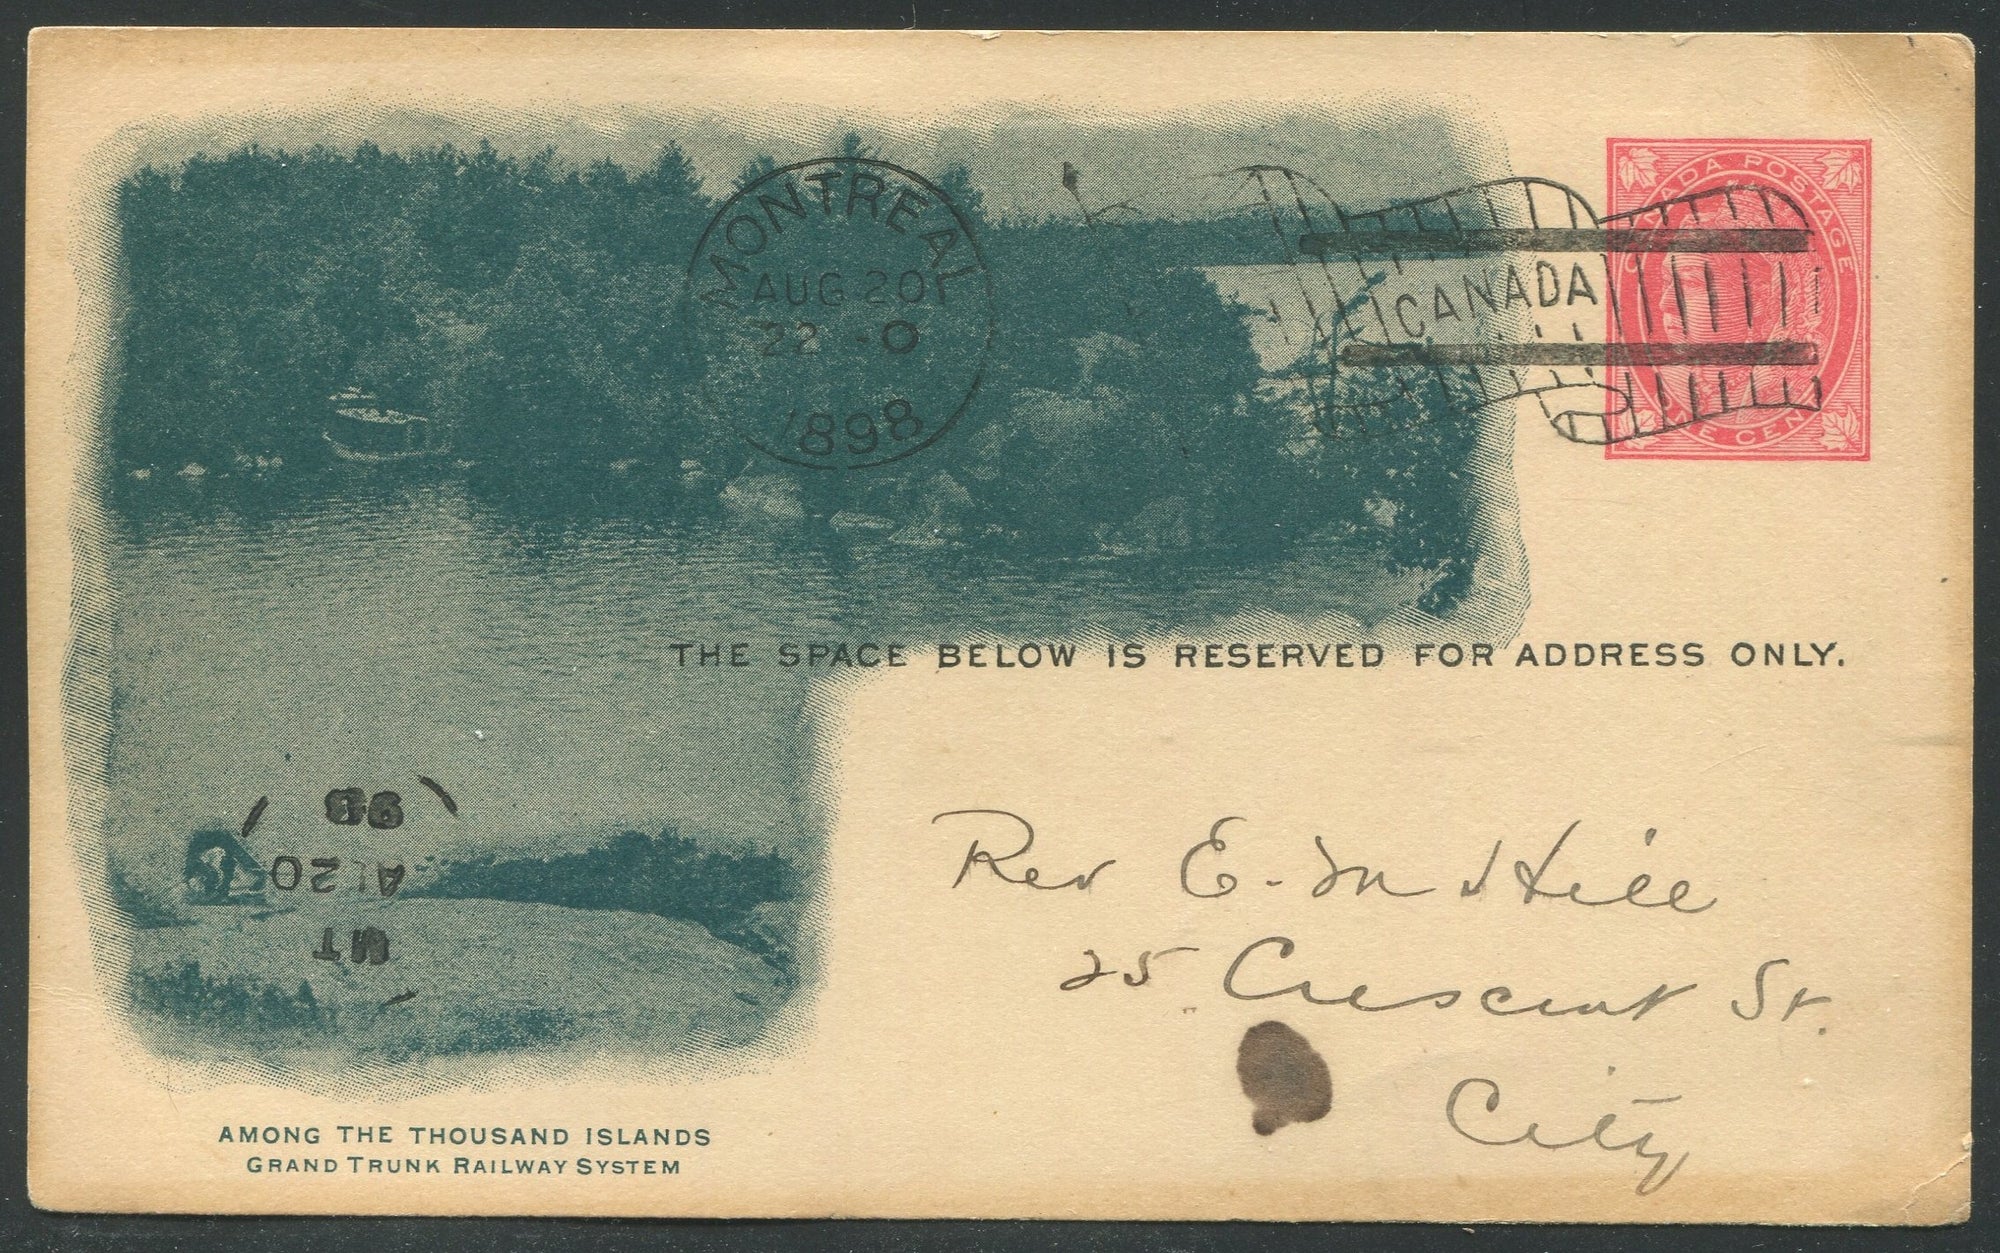 CANADA POSTAGE
ONE CENT
MONTREAL
AUG 20
22 - 0
1898
CANADA
THE SPACE BELOW IS RESERVED FOR ADDRESS ONLY.
Rev E. M Hill
25 Crescent St.
City
MT
AU 20
98
AMONG THE THOUSAND ISLANDS
GRAND TRUNK RAILWAY SYSTEM